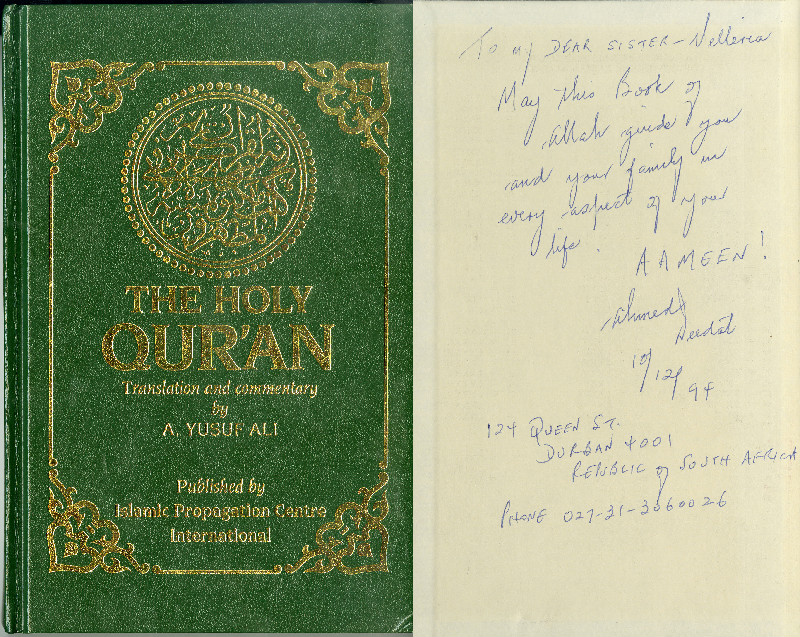 THE HOLY
QUR'AN
Translation and commentary
by
A. YUSUF ALI
Published by
Islamic Propagation Centre
International
To my DEAR SISTER - Nelleria
May this Book of
Allah guide you
and your family in
every aspect of your
life.
AAMEEN!
Ahmed
Deedat
10/12/94
124 QUEEN ST.
DURBAN 4001
REPUBLIC of SOUTH AFRICA
PHONE 027-31-3060026